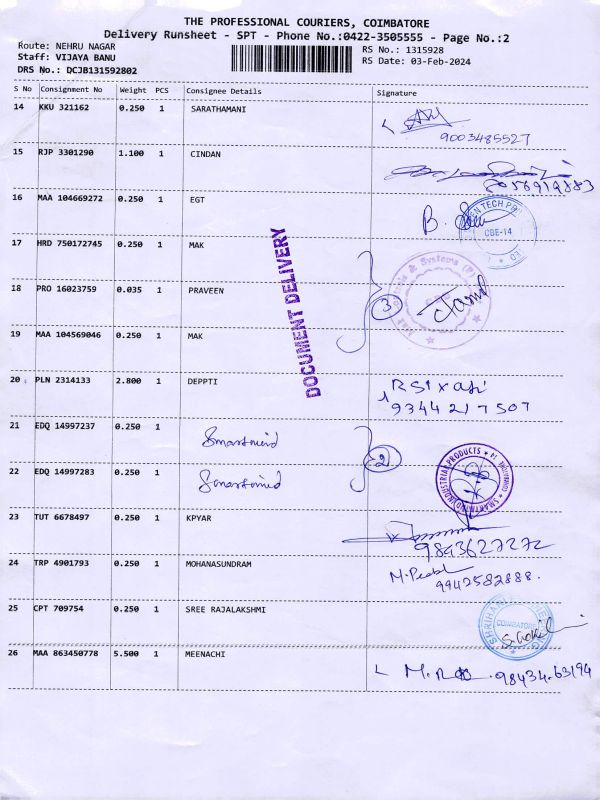 THE PROFESSIONAL COURIERS, COIMBATORE
Delivery Runsheet - SPT - Phone No.:0422-3505555 - Page No.:2
Route: NEHRU NAGAR
Staff: VIJAYA BANU
DRS No.: DCJB131592802
RS No.: 1315928
RS Date: 03-Feb-2024
S No Consignment No Weight PCS Consignee Details Signature
14 KKU 321162 0.250 1 SARATHAMANI
9003485527
15 RJP 3301290 1.100 1 CINDAN
16 MAA 104669272 0.250 1 EGT
B.
CBE-14
17 HRD 750172745 0.250 1 MAK
DOCUMENT DELIVERY
18 PRO 16023759 0.035 1 PRAVEEN
3
19 MAA 104569046 0.250 1 MAK
20 PLN 2314133 2.800 1 DEPPTI
9344217507
21 EDQ 14997237 0.250 1 Smartmeid
2
22 EDQ 14997283 0.250 1
23 TUT 6678497 0.250 1 KPYAR
9843627272
24 TRP 4901793 0.250 1 MOHANASUNDRAM
9942582888.
25 CPT 709754 0.250 1 SREE RAJALAKSHMI
COIMBATORE
26 MAA 863450778 5.500 1 MEENACHI
98434-63194